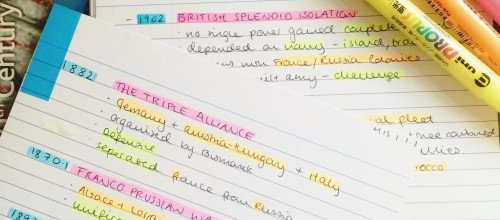 1902 BRITISH SPLENDID ISOLATION
· no single power gained complete
depended on navy - island, trad
France/Russia
army - challenge
1882
THE TRIPLE ALLIANCE
· Germany + Austria-Hungary + Italy
· organised by Bismarck
· Defensive
· seperated france from Russia
1870-1
FRANCO PRUSSIAN WA
· Alsace + Lorra
· unific
fleet
rocco
Century
uni PROPU